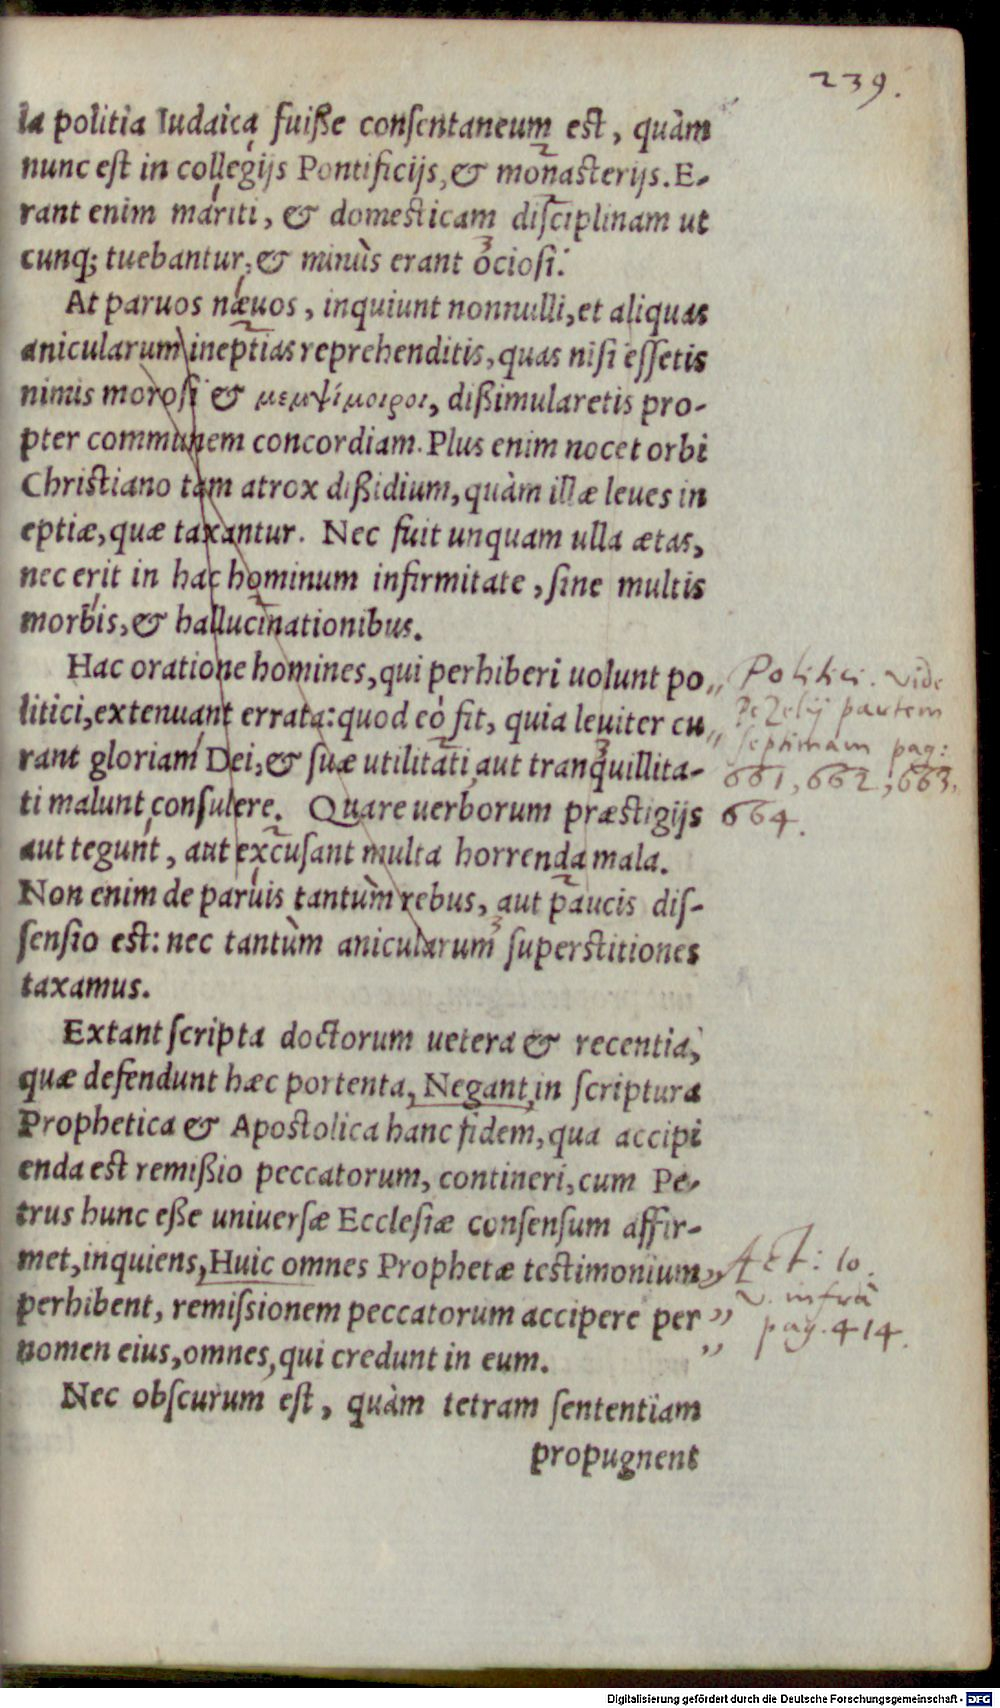 239.
la politia Iudaica fuiſſe conſentaneum est, quàm
nunc eſt in collegijs Pontificijs, & monasterijs. E-
rant enim mariti, & domesticam diſciplinam ut
cunq; tuebantur, & minùs erant ociosi.
At paruos næuos, inquiunt nonnulli, et aliquas
anicularum ineptias reprehenditis, quas niſi eſſetis
nimis moroſi & μεμψίμοιροι, dißimularetis pro-
pter communem concordiam. Plus enim nocet orbi
Christiano tam atrox dißidium, quàm illæ leues in
eptiæ, quæ taxantur. Nec fuit unquam ulla ætas,
nec erit in hac hominum infirmitate, ſine multis
morbis, & hallucinationibus.
Hac oratione homines, qui perhiberi uolunt po
litici, extenuant errata: quod eò fit, quia leuiter cu
rant gloriam Dei, & ſuæ utilitati aut tranquillita-
ti malunt conſulere. Quare uerborum præstigijs
aut tegunt, aut excuſant multa horrenda mala.
Non enim de paruis tantùm rebus, aut paucis diſ-
ſenſio est: nec tantùm anicularum ſuperstitiones
taxamus.
Extant ſcripta doctorum uetera & recentia,
quæ defendunt hæc portenta, Negant in ſcriptura
Prophetica & Apostolica hanc fidem, qua accipi
enda est remißio peccatorum, contineri, cum Pe-
trus hunc eße uniuerſæ Eccleſiæ conſenſum affir-
met, inquiens, Huic omnes Prophetæ testimonium
perhibent, remiſsionem peccatorum accipere per
nomen eius, omnes, qui credunt in eum.
Nec obſcurum eſt, quàm tetram ſententiam
propugnent
Politici. vide
Pezelij partem
septimam pag:
661, 662, 663,
664.
Act: 10.
v. infrà
pag. 414.
Digitalisierung gefördert durch die Deutsche Forschungsgemeinschaft - DFG